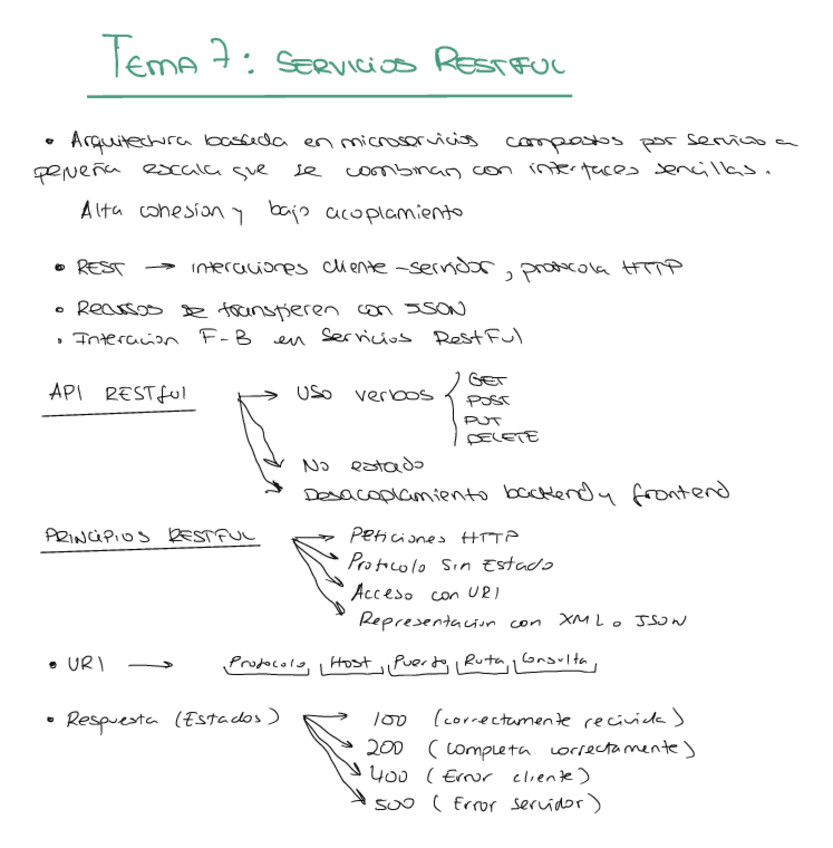 TEMA 7: SERVICIOS RESTFUL
• Arquitectura basada en microservicios compostos por servicio a
pequeña escala que se combinan con interfaces sencillas.
Alta cohesion y bajo acoplamiento
• REST → interaciones cliente-servidor, protocolo HTTP
• Recursos se transfieren con JSON
• Interacion F-B en Servicios RestFul
API RESTful → USO verbos { GET
POST
PUT
DELETE
No estado
Desacoplamiento backend y frontend
PRINCIPIOS RESTFUL → Peticiones HTTP
Protocolo Sin Estado
Acceso con URI
Representacion con XML o JSON
• URI → Protocolo, Host, Puerto, Ruta, Consulta,
• Respuesta (Estados) → 100 (correctamente recivida)
200 (completa correctamente)
400 (Error cliente)
500 (Error servidor)